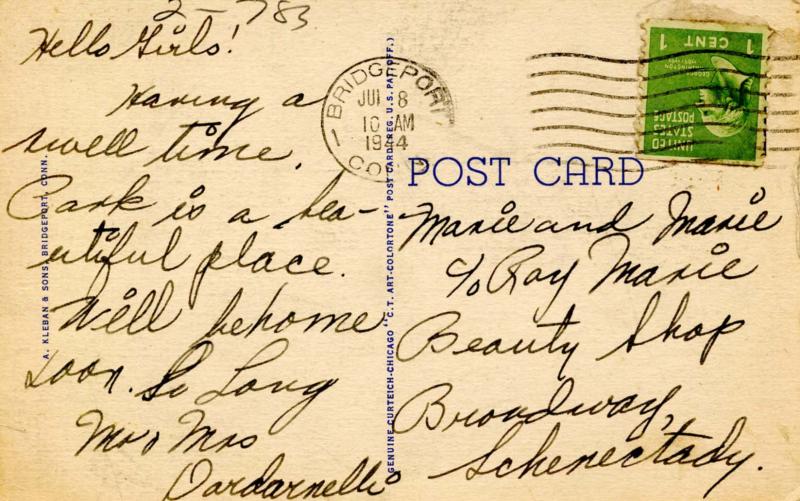 2-783
Hello Girls!
Having a
swell time.
Park is a bea-
utiful place.
Will be home
soon. So Long
Mr & Mrs
Dardarnelli
A. KLEBAN & SONS, BRIDGEPORT, CONN.
GENUINE CURTEICH-CHICAGO "C.T. ART-COLORTONE" POST CARD (REG. U.S. PAT. OFF.)
BRIDGEPORT
JUL 8
10 AM
1944
CONN
POST CARD
1 CENT 1
UNITED
STATES
POSTAGE
Marie and Marie
c/o Ray Marie
Beauty Shop
Broadway,
Schenectady.